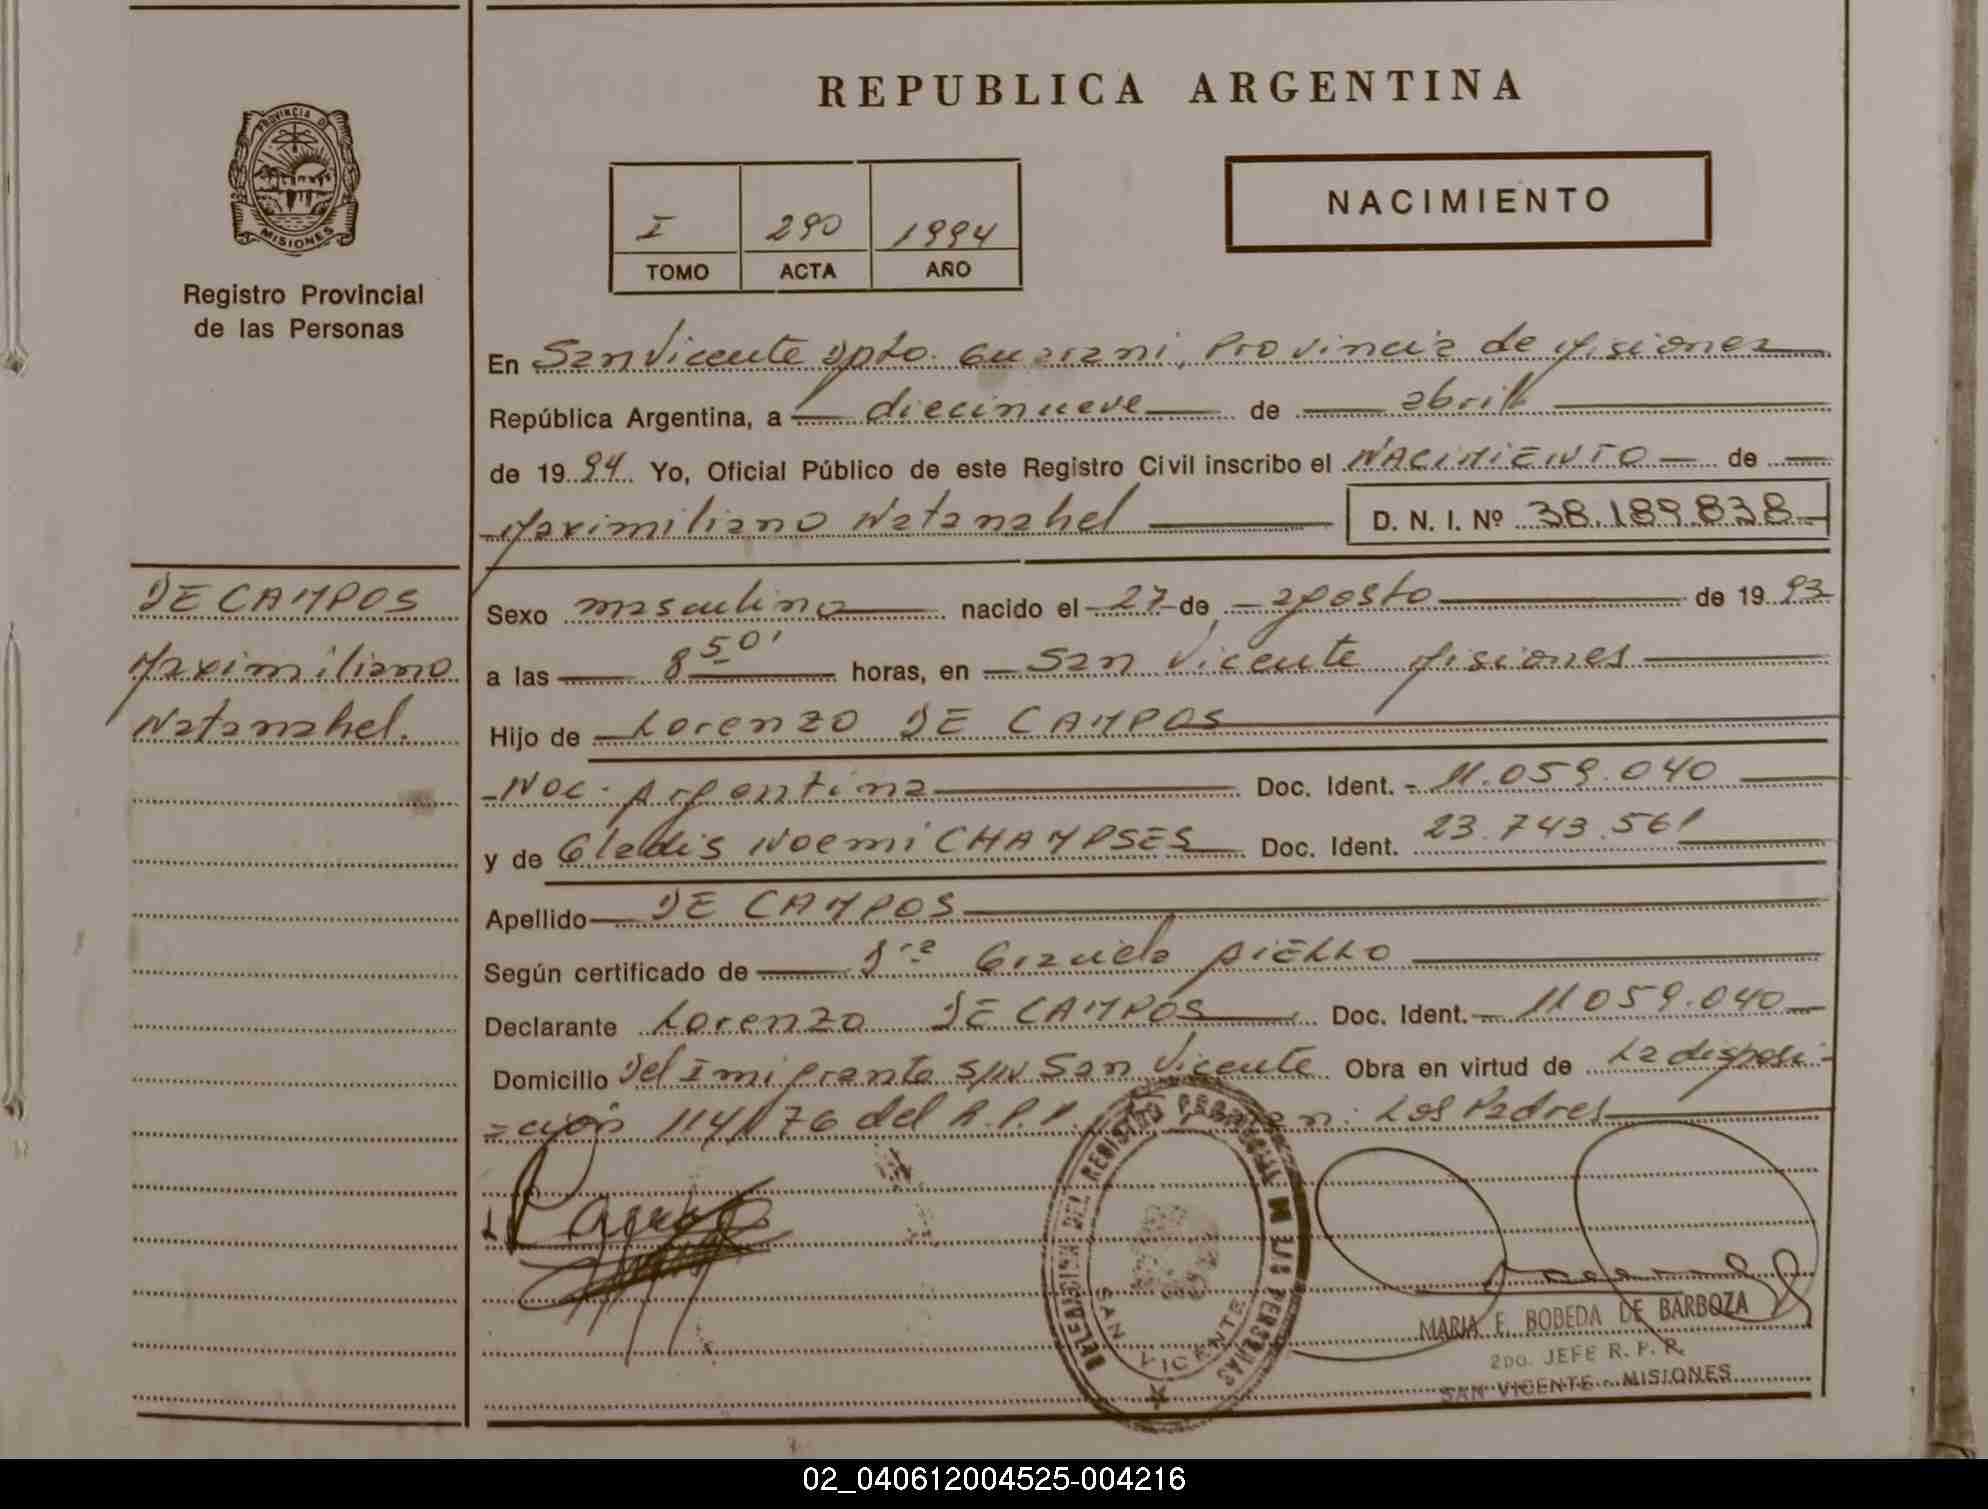 REPUBLICA ARGENTINA
PROVINCIA DE
MISIONES
Registro Provincial
de las Personas
I 290 1994
TOMO ACTA AÑO
NACIMIENTO
En San Vicente Dpto. Guarani, Provincia de Misiones
República Argentina, a diecinueve de abril
de 1994 Yo, Oficial Público de este Registro Civil inscribo el NACIMIENTO de
Maximiliano Natanahel D. N. I. Nº 38.189.838
DE CAMPOS
Maximiliano
Natanahel.
Sexo masculino nacido el 27 de agosto de 1993
a las 8 50' horas, en San Vicente Misiones
Hijo de Lorenzo DE CAMPOS
Nac. Argentina Doc. Ident. 11.059.040
y de Gladis Noemi CHAMPSES Doc. Ident. 23.743.561
Apellido DE CAMPOS
Según certificado de Dra Graciela
Declarante Lorenzo DE CAMPOS Doc. Ident. 11059.040
Domicilio Del Imigrante S/N San Vicente Obra en virtud de La disposi-
ción 114/76 del R.P.P. Los Padres
DELEGACION DEL REGISTRO PROVINCIAL DE LAS PERSONAS
SAN VICENTE
MARIA E. BOBEDA DE BARBOZA
2DO. JEFE R. P. P.
SAN VICENTE - MISIONES
02_040612004525-004216